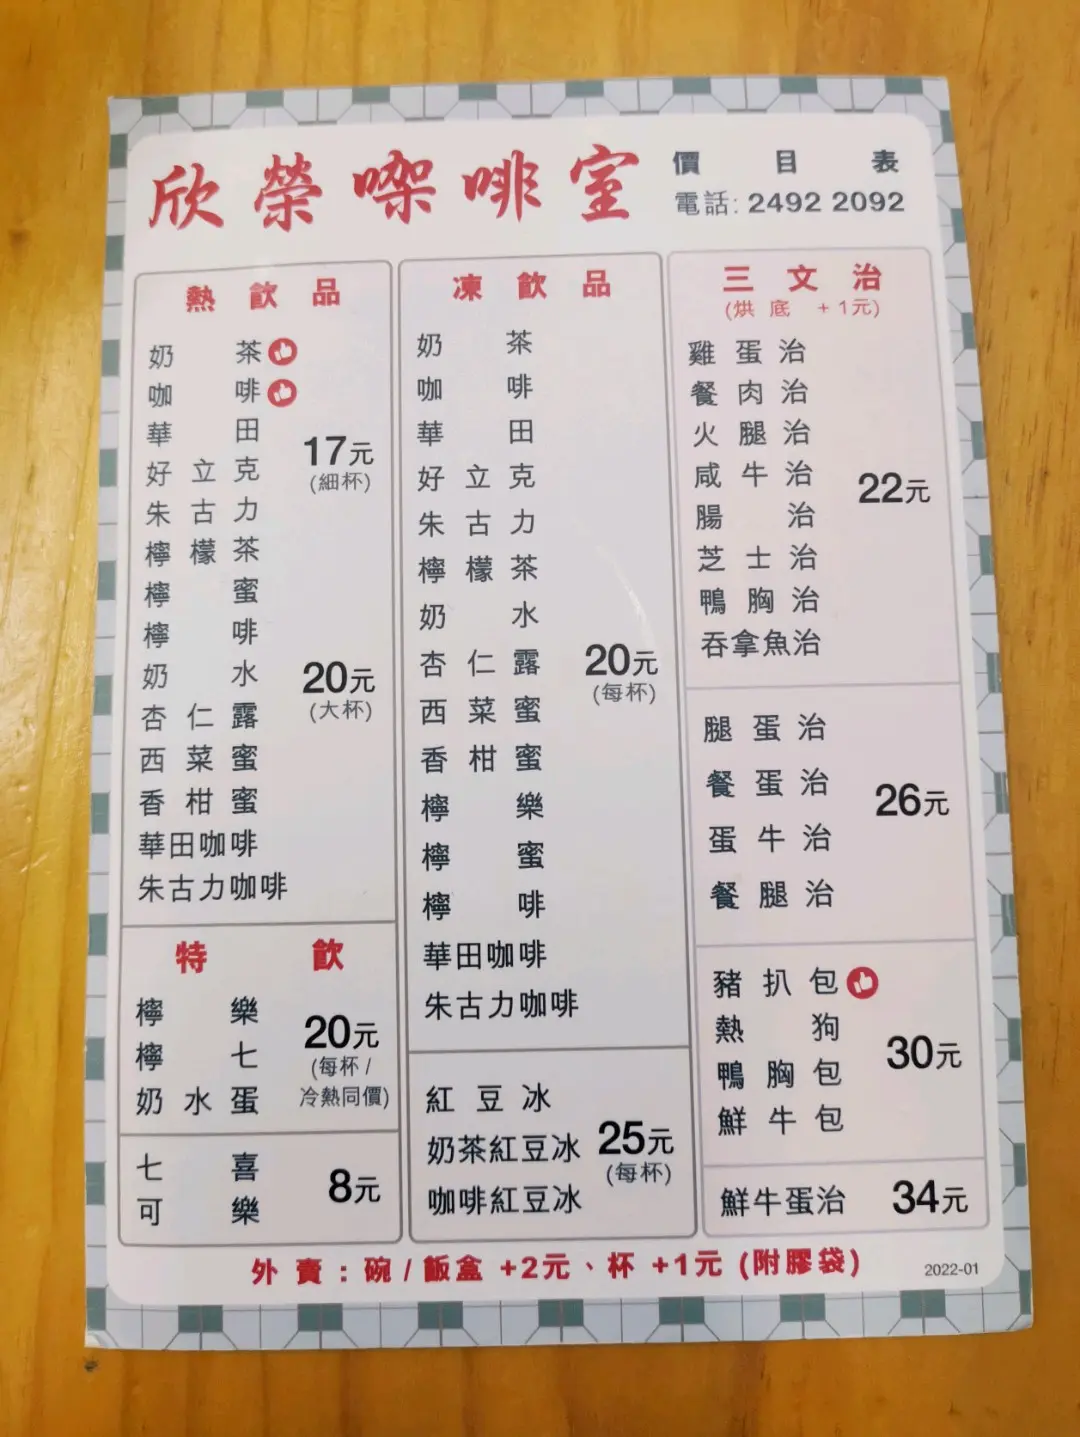 欣榮㗎啡室
價目表
電話: 2492 2092
熱飲品
奶茶
咖啡
華田
好立克
朱古力
檸檬茶
檸蜜
檸啡
奶水
杏仁露
西菜蜜
香柑蜜
華田咖啡
朱古力咖啡
17元
(細杯)
20元
(大杯)
特飲
檸樂
檸七
奶水蛋
20元
(每杯 /
冷熱同價)
七喜
可樂
8元
凍飲品
奶茶
咖啡
華田
好立克
朱古力
檸檬茶
奶水
杏仁露
西菜蜜
香柑蜜
檸樂
檸蜜
檸啡
華田咖啡
朱古力咖啡
20元
(每杯)
紅豆冰
奶茶紅豆冰
咖啡紅豆冰
25元
(每杯)
三文治
(烘底 +1元)
雞蛋治
餐肉治
火腿治
咸牛治
腸治
芝士治
鴨胸治
吞拿魚治
22元
腿蛋治
餐蛋治
蛋牛治
餐腿治
26元
豬扒包
熱狗
鴨胸包
鮮牛包
30元
鮮牛蛋治
34元
外賣 : 碗 / 飯盒 +2元、杯 +1元 (附膠袋)
2022-01